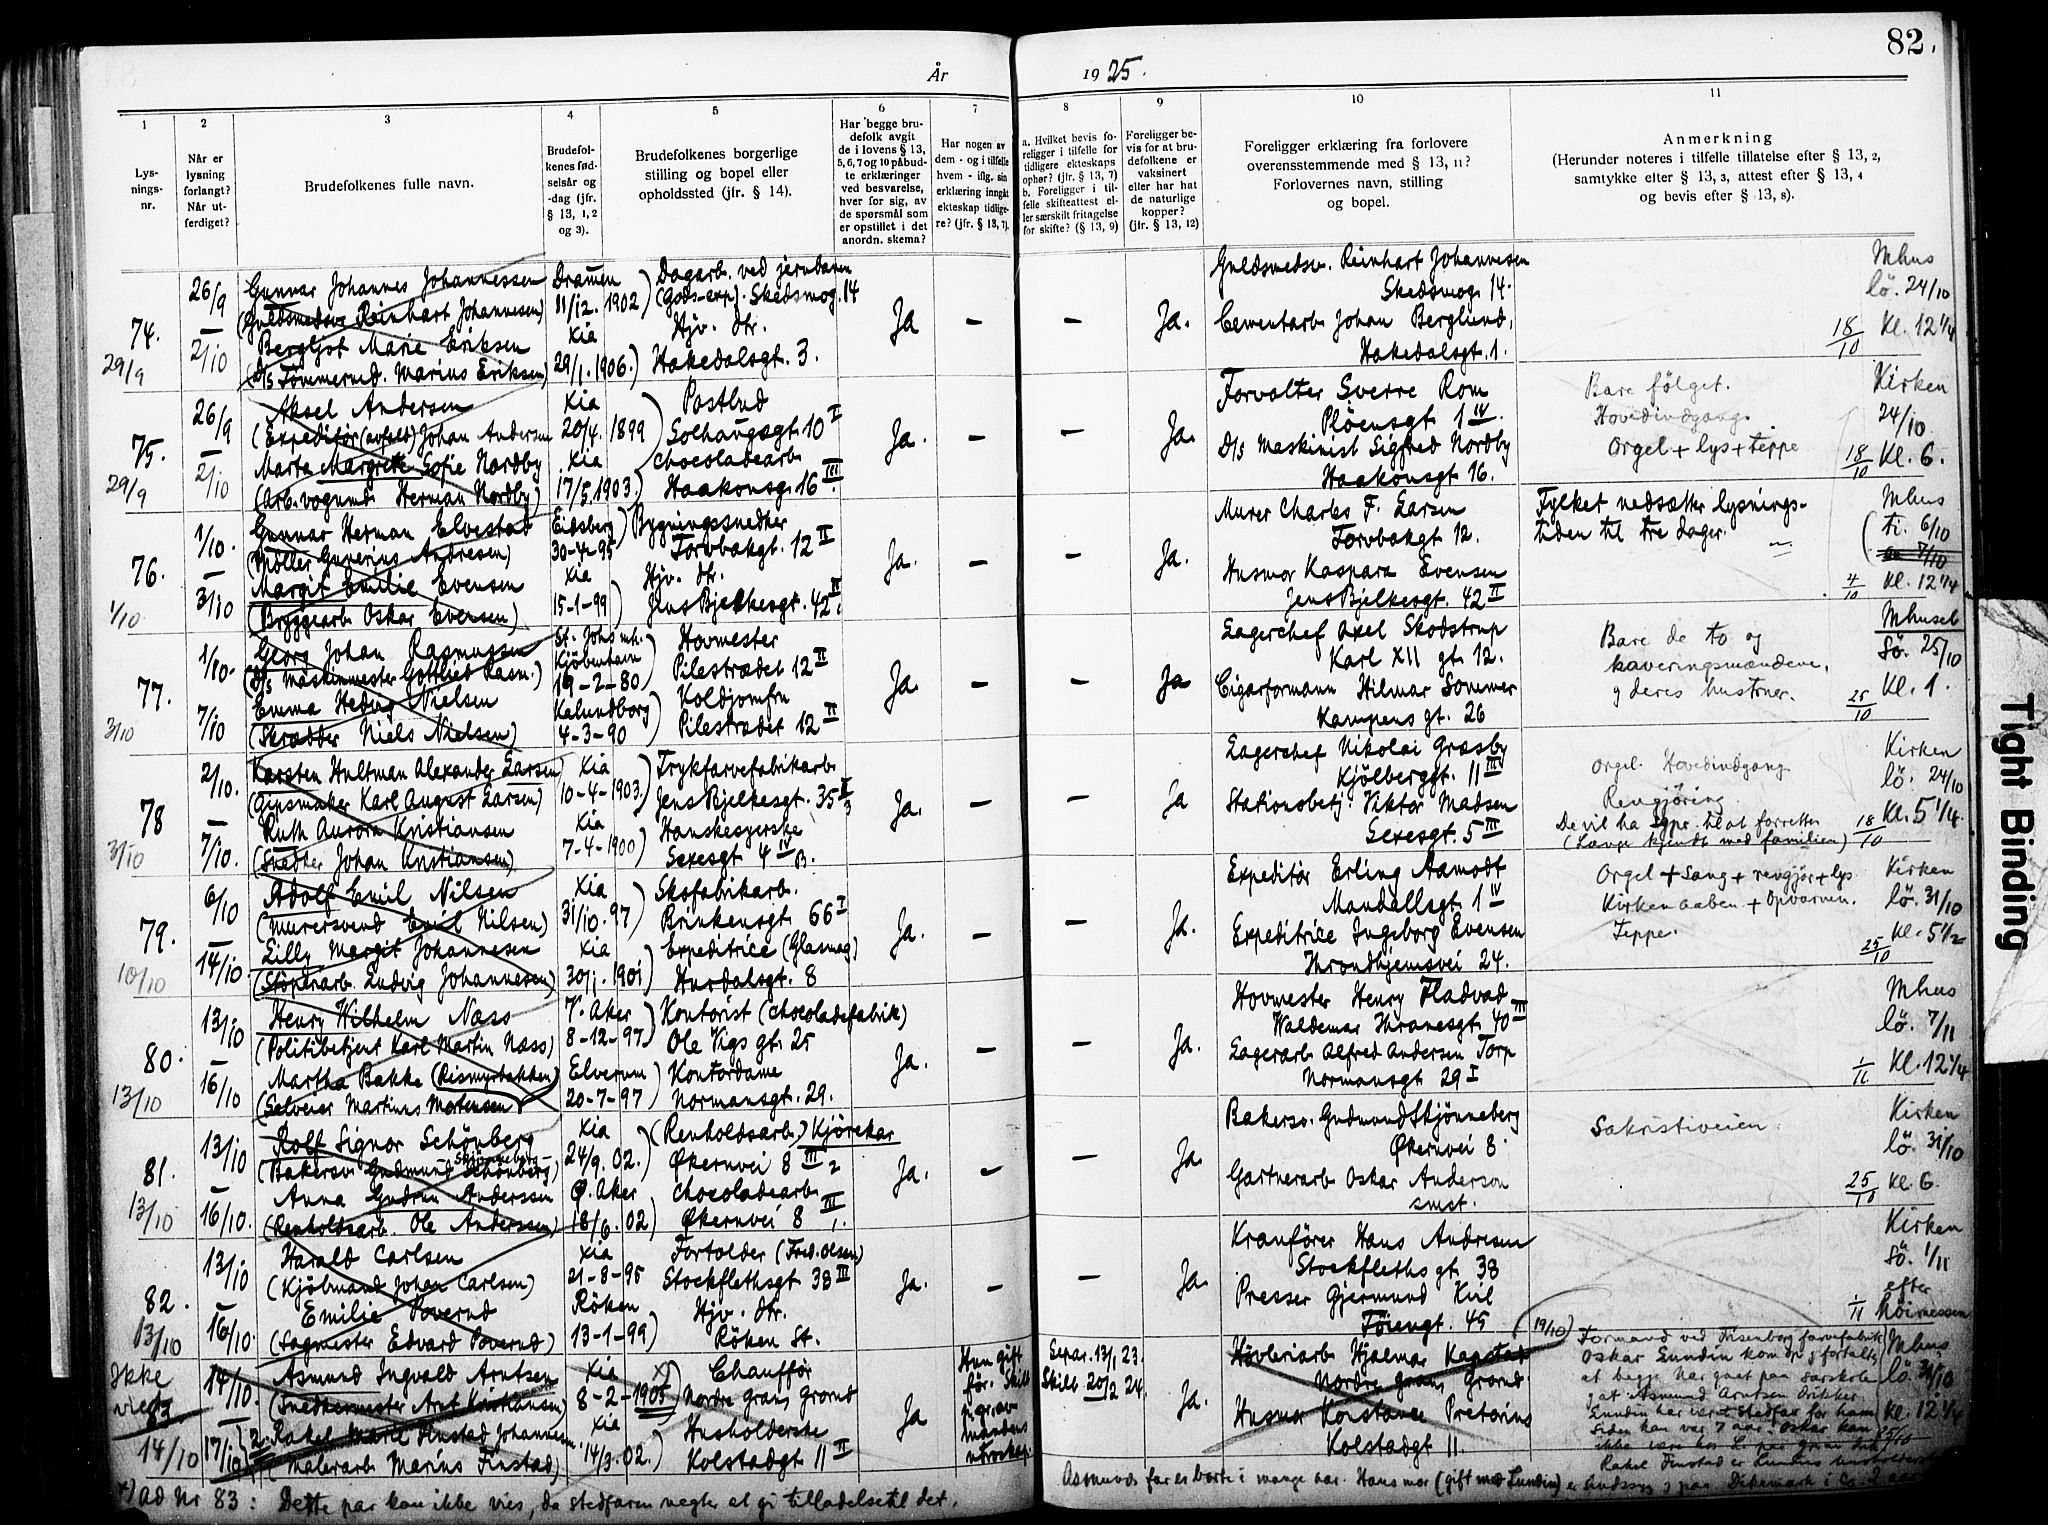 82.
År 1925.
1
2
3
4
5
6
7
8
9
10
11
Lys-
nings-
nr.
Når er
lysning
forlangt?
Når ut-
ferdiget?
Brudefolkenes fulle navn.
Brudefol-
kenes fød-
selsår og
-dag (jfr.
§ 13, 1, 2
og 3).
Brudefolkenes borgerlige
stilling og bopel eller
opholdssted (jfr. § 14).
Har begge bru-
defolk avgit
de i lovens § 13,
5, 6, 7 og 10 påbud-
te erklæringer
ved besvarelse,
hver for sig, av
de spørsmål som
er opstillet i det
anordn. skema?
Har nogen av
dem - og i tilfelle
hvem - iflg. sin
erklæring inngått
ekteskap tidlige-
re? (jfr. § 13, 7).
a. Hvilket bevis fo-
religger i tilfelle for
tidligere ekteskaps
ophør? (jfr. § 13, 7)
b. Foreligger i til-
felle skifteattest el-
ler særskilt fritagelse
for skifte? (§ 13, 9)
Foreligger be-
vis for at bru-
defolkene er
vaksinert
eller har hat
de naturlige
kopper?
(jfr. § 13, 12)
Foreligger erklæring fra forlovere
overensstemmende med § 13, 11?
Forlovernes navn, stilling
og bopel.
Anmerkning
(Herunder noteres i tilfelle tillatelse efter § 13, 2,
samtykke efter § 13, 3, attest efter § 13, 4
og bevis efter § 13, 8).
74.
29/9
26/9
2/10
Gunnar Johannes Johannessen
(Guldsmedsv Reinhart Johannesen)
Bergljot Marie Eriksen
(d/s Tømmermd. Marius Eriksen)
Drammen
11/12. 1902
Kia
29/1. 1906.
Dagarb. ved jernbanen
(Gods-exp). Skedsmog. 14
Hjv. dtr.
Hakedalsgt. 3.
Ja
–
–
Ja.
Guldsmedsv. Reinhart Johannesen
Skedsmog. 14.
Cementarb Johan Berglund,
Hakedalsgt. 1.
Mhus
lö. 24/10
18/10 Kl. 12 1/4
75.
29/9
26/9
2/10
Aksel Andersen
(Expeditør (avfeld) Johan Andersen
Marta Margrete Sofie Nordby
(Arb. vognmd. Herman Nordby)
Kia
20/4. 1899
Kia
17/5. 1903.
Postbud
Solhaugsgt. 10 I
Chocoladearb
Haakonsg. 16 III
Ja.
–
–
Ja.
Forvalter Sverre Rom
Pløensgt. 1 IV.
d/s Maskinist Sigfred Nordby
Haakonsgt 16.
Bare følget.
Hovedindgang.
Orgel + lys + teppe
Kirken
24/10
18/10 Kl. 6.
76.
1/10
1/10.
3/10
Gunnar Herman Elvestad
(Møller Gunerius Andresen)
Margit Emilie Evensen
(Bryggearb Oskar Evensen)
Eidsberg
30-4-95
Kia
15-1-99
Bygningssnedker
Torvbakgt. 12 II
Hjv. dtr.
Jens Bjelkesgt. 42 II.
Ja.
–
–
Ja.
Murer Charles F. Larsen
Torvbakgt 12.
Husmor Kaspara Evensen
Jens Bjelkesgt. 42 II
Fylket nedsætter lysnings-
tiden til tre dager.
Mhus
ti. 6/10
4/10 Kl. 12 1/4
77.
3/10
1/10.
7/10
Georg Johan Rasmussen
(d/s Maskinmester Gottlied Rasm.)
Emma Hedvig Nielsen
(Skrædder Niels Nielsen)
St. Johs mh.
Kjöbenhavn
19-2-80
Kalundborg
4-3-90
Hovmester
Pilestrædet 12 II
Koldjomfru
Pilestrædet 12 II
Ja.
–
–
Ja
Lagerchef Axel Skodstrup
Karl XII gt. 12.
Cigarformann Hilmar Sommer
Kampens gt. 26
Bare de to og
kaveringsmændene,
g deres hustruer.
Mhuset
Sö. 25/10
25/10 Kl. 1.
78
3/10
2/10.
7/10.
Karsten Hultman Alexander Larsen
(Gipsmaker Karl August Larsen)
Ruth Aurora Kristiansen
(Snedker Johan Kristiansen)
Kia
10-4-1903.
Kia
7-4-1900
Trykfarvefabrikarb
Jens Bjelkesgt. 35 II 3
Hanskesyerske
Sexesgt 4 IV B.
Ja.
–
–
Ja
Lagerchef Nikolai Græsby
Kjölberggt. 11 III
Stationsbetj. Viktor Madsen
Sexesgt. 5 III
Orgel. Hovedindgang.
Rengjöring
De vil ha spr. til at forrette
(Længe kjendt med familien)
Kirken
lö. 24/10
18/10 Kl. 5 1/4.
79.
10/10
6/10
14/10.
Adolf Emil Nilsen
(Murersvend Emil Nilsen)
Lilly Margit Johannesen
(Støperarb Ludvig Johannesen)
Kia
31/10. 97
Kia
30/1. 1901
Skofabrikarb.
Brinkensgt. 66 I
Expeditrice (Glasmag)
Hurdalsgt. 8
Ja.
–
–
Ja.
Expeditør Erling Aamodt
Mandallsgt. 1 IV
Expeditrice Ingeborg Evensen
Throndhjemsvei 24.
Orgel + Sang + rengjör + lys
Kirken aaben + Opvarmn.
Teppe.
Kirken
lö. 31/10
25/10 Kl. 5 1/2
80.
13/10
13/10
16/10
Henry Wilhelm Næss
(Politibetjent Karl Martin Næss)
Martha Bakke (Rismyrbakken)
(Selveier Martinus Mortensen)
V. Aker
8-12-97
Elverum
20-7-97
Kontorist (Chocoladefabrik)
Ole Vigs gt. 25
Kontordame
Normansgt. 29.
Ja.
–
–
Ja.
Hovmester Henry Fladvad
Waldemar Thranesgt. 40 III
Lagerarb Alfred Andersen Torp
Normansgt 29 I
Mhus
lö. 7/11
1/11 Kl. 12 1/4
81.
13/10
13/10
16/10.
Rolf Signor Schönberg
Skjønneberg
(Bakersv Gudmund Schönberg)
Anna Gudrun Anderssen
(Renholdsarb. Ole Anderssen)
Kia
24/9. 02.
Ø. Aker
18/6. 02
(Renholdsarb.) Kjørekar
Økernvei 8 III 2
Chocoladearb
Økernvei 8 III 1.
Ja.
–
–
Ja.
Bakersv. Gudmund Skjönneberg
Økernvei 8.
Gartnerarb Oskar Anderson
smst.
Sakristiveien.
Kirken
lö. 31/10
25/10 Kl. 6.
82.
13/10
13/10
16/10.
Harald Carlsen
(Kjölmand Johan Carlsen)
Emilie Poverud
(Sagmester Edvard Poverud)
Kia
21-8-95
Röken
13-1-99
Fortolder (Fred. Olsen)
Stockflethsgt 38 III
Hjv. dtr.
Röken St.
Ja.
–
–
Ja.
Kranfører Hans Andresen
Stockfleths gt. 38
Presser Gjermund Kiil
Töiengt. 45
Kirken
Sö. 1/11
efter
1/11 Höimessen
Ikke
viet
83
14/10
14/10.
17/10
Asmund Ingvald Arntsen
(Snedkermester Arnt Kristiansen)
2. Rakel Marie Finstad Johannesen.
(Malerarb Marius Finstad)
Kia x)
8-2-1905
Kia
14/3. 02.
Chauffør
Nordre gran, Grorud
Husholderske
Kolstadgt 11 II
Ja
Hun gift
før. Skilt
Separ. 13/1 23.
Skilt 20/2 24.
Ja.
Høvleriarb Hjalmar Kapstad
Nordre gran, Grorud.
Husmor Konstance Pretorius
Kolstadgt 11.
(19/10)
Formand ved Frisenborg farvefabrik
Oskar Lundin kom op g fortalte
at begge har gaat paa særskole
g at Asmund Arntsen drikker.
Lundin har været stedfar for ham
siden han var 7 aar. Oskar kan
Mhus
lö. 31/10
Kl. 12 1/4
25/10
x) Ad Nr 83: Dette par kan ikke vies, da stedfaren negter at gi tilladelse til det.
Asmunds far er borte i mange aar. Hans mor (gift med Lundin) er sindssyg g paa Dikemark i ca. 2 aar
Tight Binding